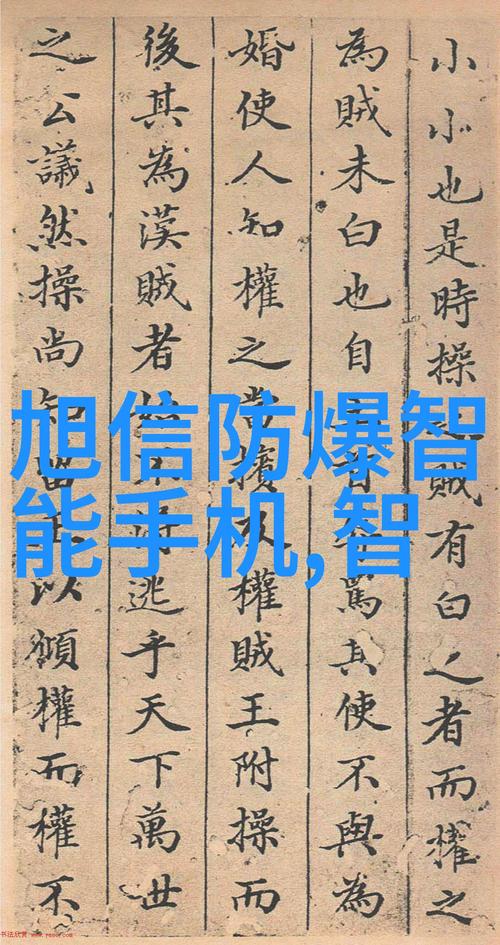 小小也是時操之賊有白之者而權之
為賊未白也自罵其使不與為
婚使人知權之當擯及權賊王附操而
後其為漢賊者始不得逃乎天下萬世
之公議然操尚知以權而權不
旭信防爆智
能手机,智
书法欣赏